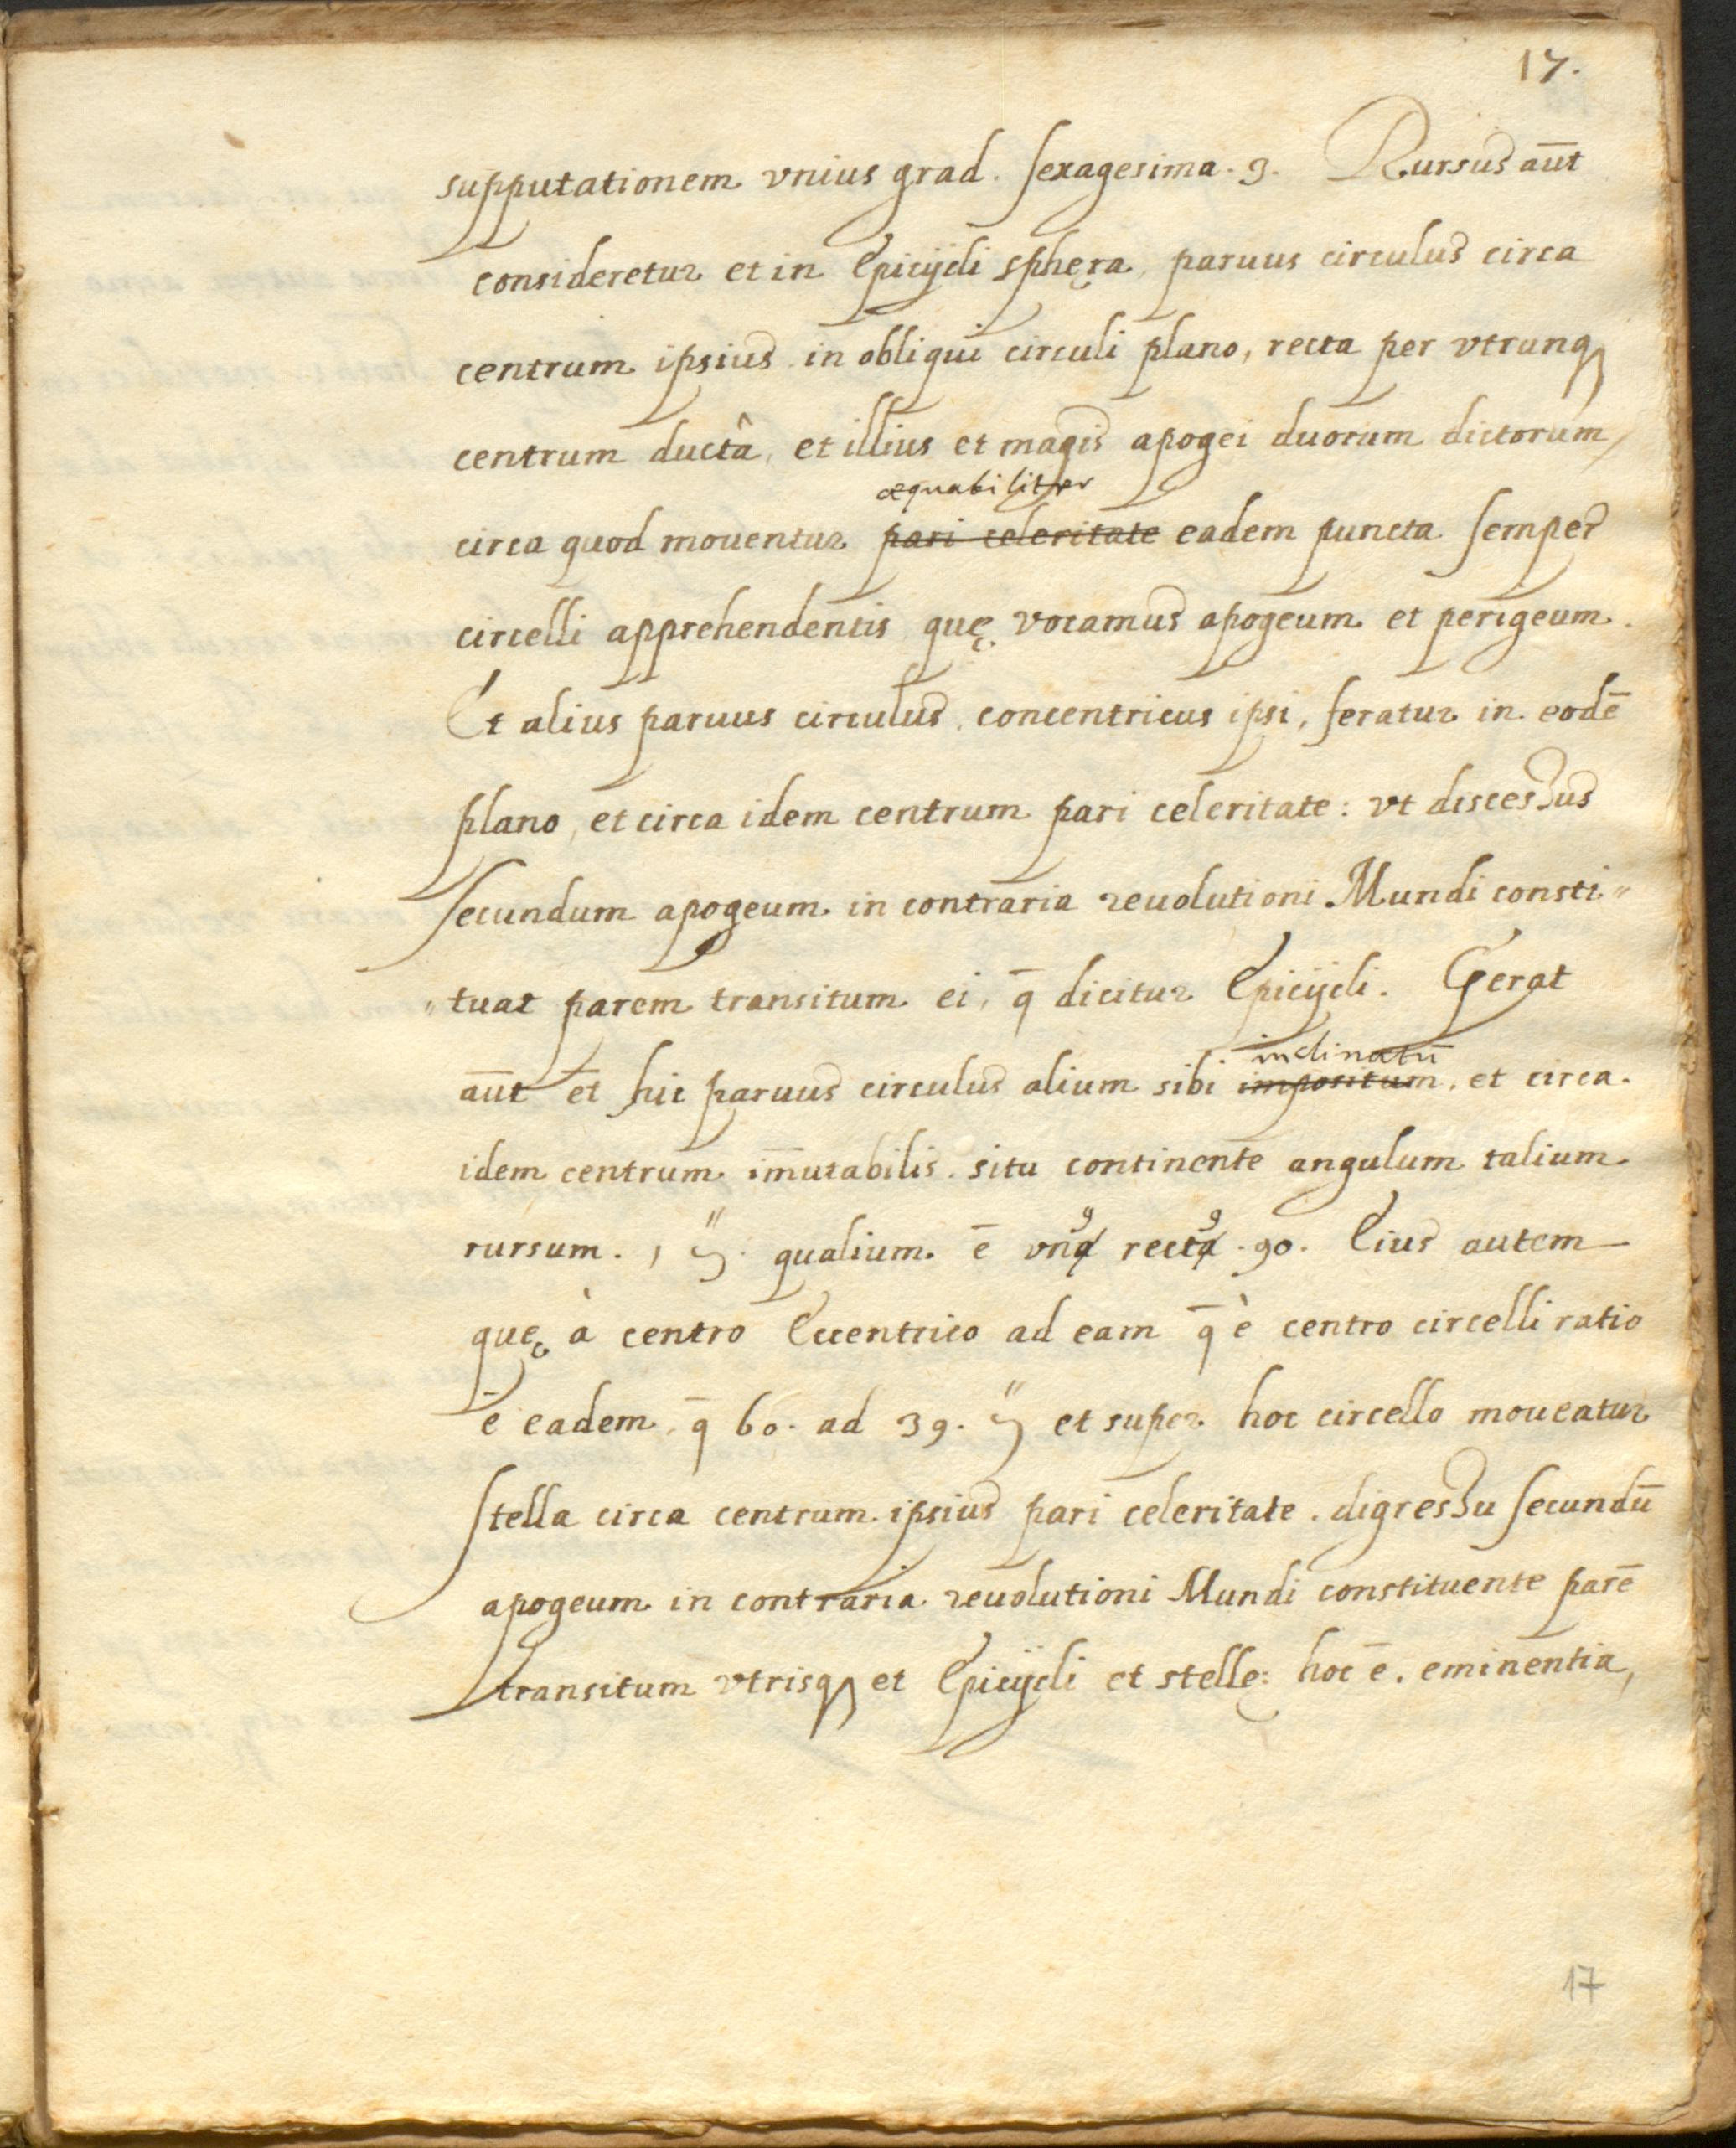 17.
supputationem vnius grad. sexagesima. 3. Rursus aūt
consideretur et in Epicycli sphęra, paruus circulus circa
centrum ipsius in obliqui circuli plano, recta per vtrunq
centrum ductâ, et illius et magis apogei duorum dictorum,
æquabiliter
circa quod mouentur pari celeritate eadem puncta semper
circelli apprehendentis quę vocamus apogeum et perigeum.
Et alius paruus circulus, concentricus ipsi, feratur in eodē
plano, et circa idem centrum pari celeritate: vt discessus
secundum apogeum in contraria reuolutioni Mundi consti"
"tuat parem transitum ei, q̄ dicitur Epicycli. Gerat
inclinatū
aūt et̄ hic paruus circulus alium sibi impositum, et circa
idem centrum im̄utabilis situ continentē angulum talium
rursum. , ʒ". qualium ē vnq rectq. 90. Eius autem
quę à centro Eccentrico ad eam q̄ è centro circelli ratio
ē eadem, q̄ 60. ad 39. ʒ" et super hoc circello moueatur
stella circa centrum ipsius pari celeritate. digressu secundū
apogeum in contraria reuolutioni Mundi constituente parē
transitum vtrisq et Epicycli et stellę: hoc ē. eminentia,
17